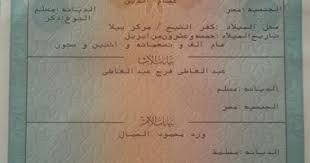 الجنسية: مصر الديانة: مسلم
النوع: ذكر
محل الميلاد: كفر الشيخ / مركز بيلا
تاريخ الميلاد: خمسة وعشرون من ابريل
عام الف و تسعمائة و اثنين و ستون
بيانات الأب
عبد العاطى فرج عبد العاطى
الديانة: مسلم
الجنسية: مصر
بيانات الأم
ورد محبوب
الديانة: مسلمة